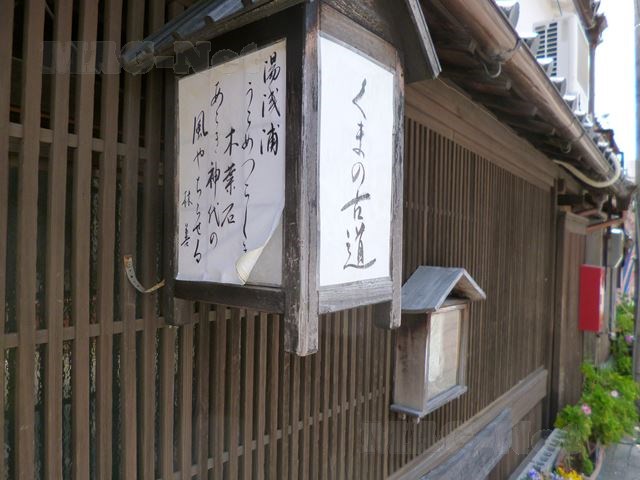 湯浅浦
うらめつらし
木葉石
あらき神代の
風やちらせる
くまの古道